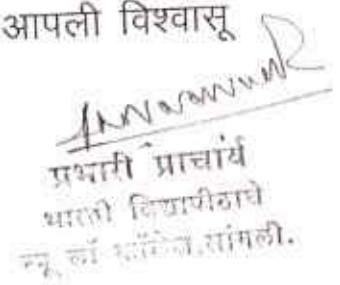 आपली विश्वासू
प्रभारी प्राचार्य
भारती विद्यापीठाचे
न्यू लॉ कॉलेज, सांगली.